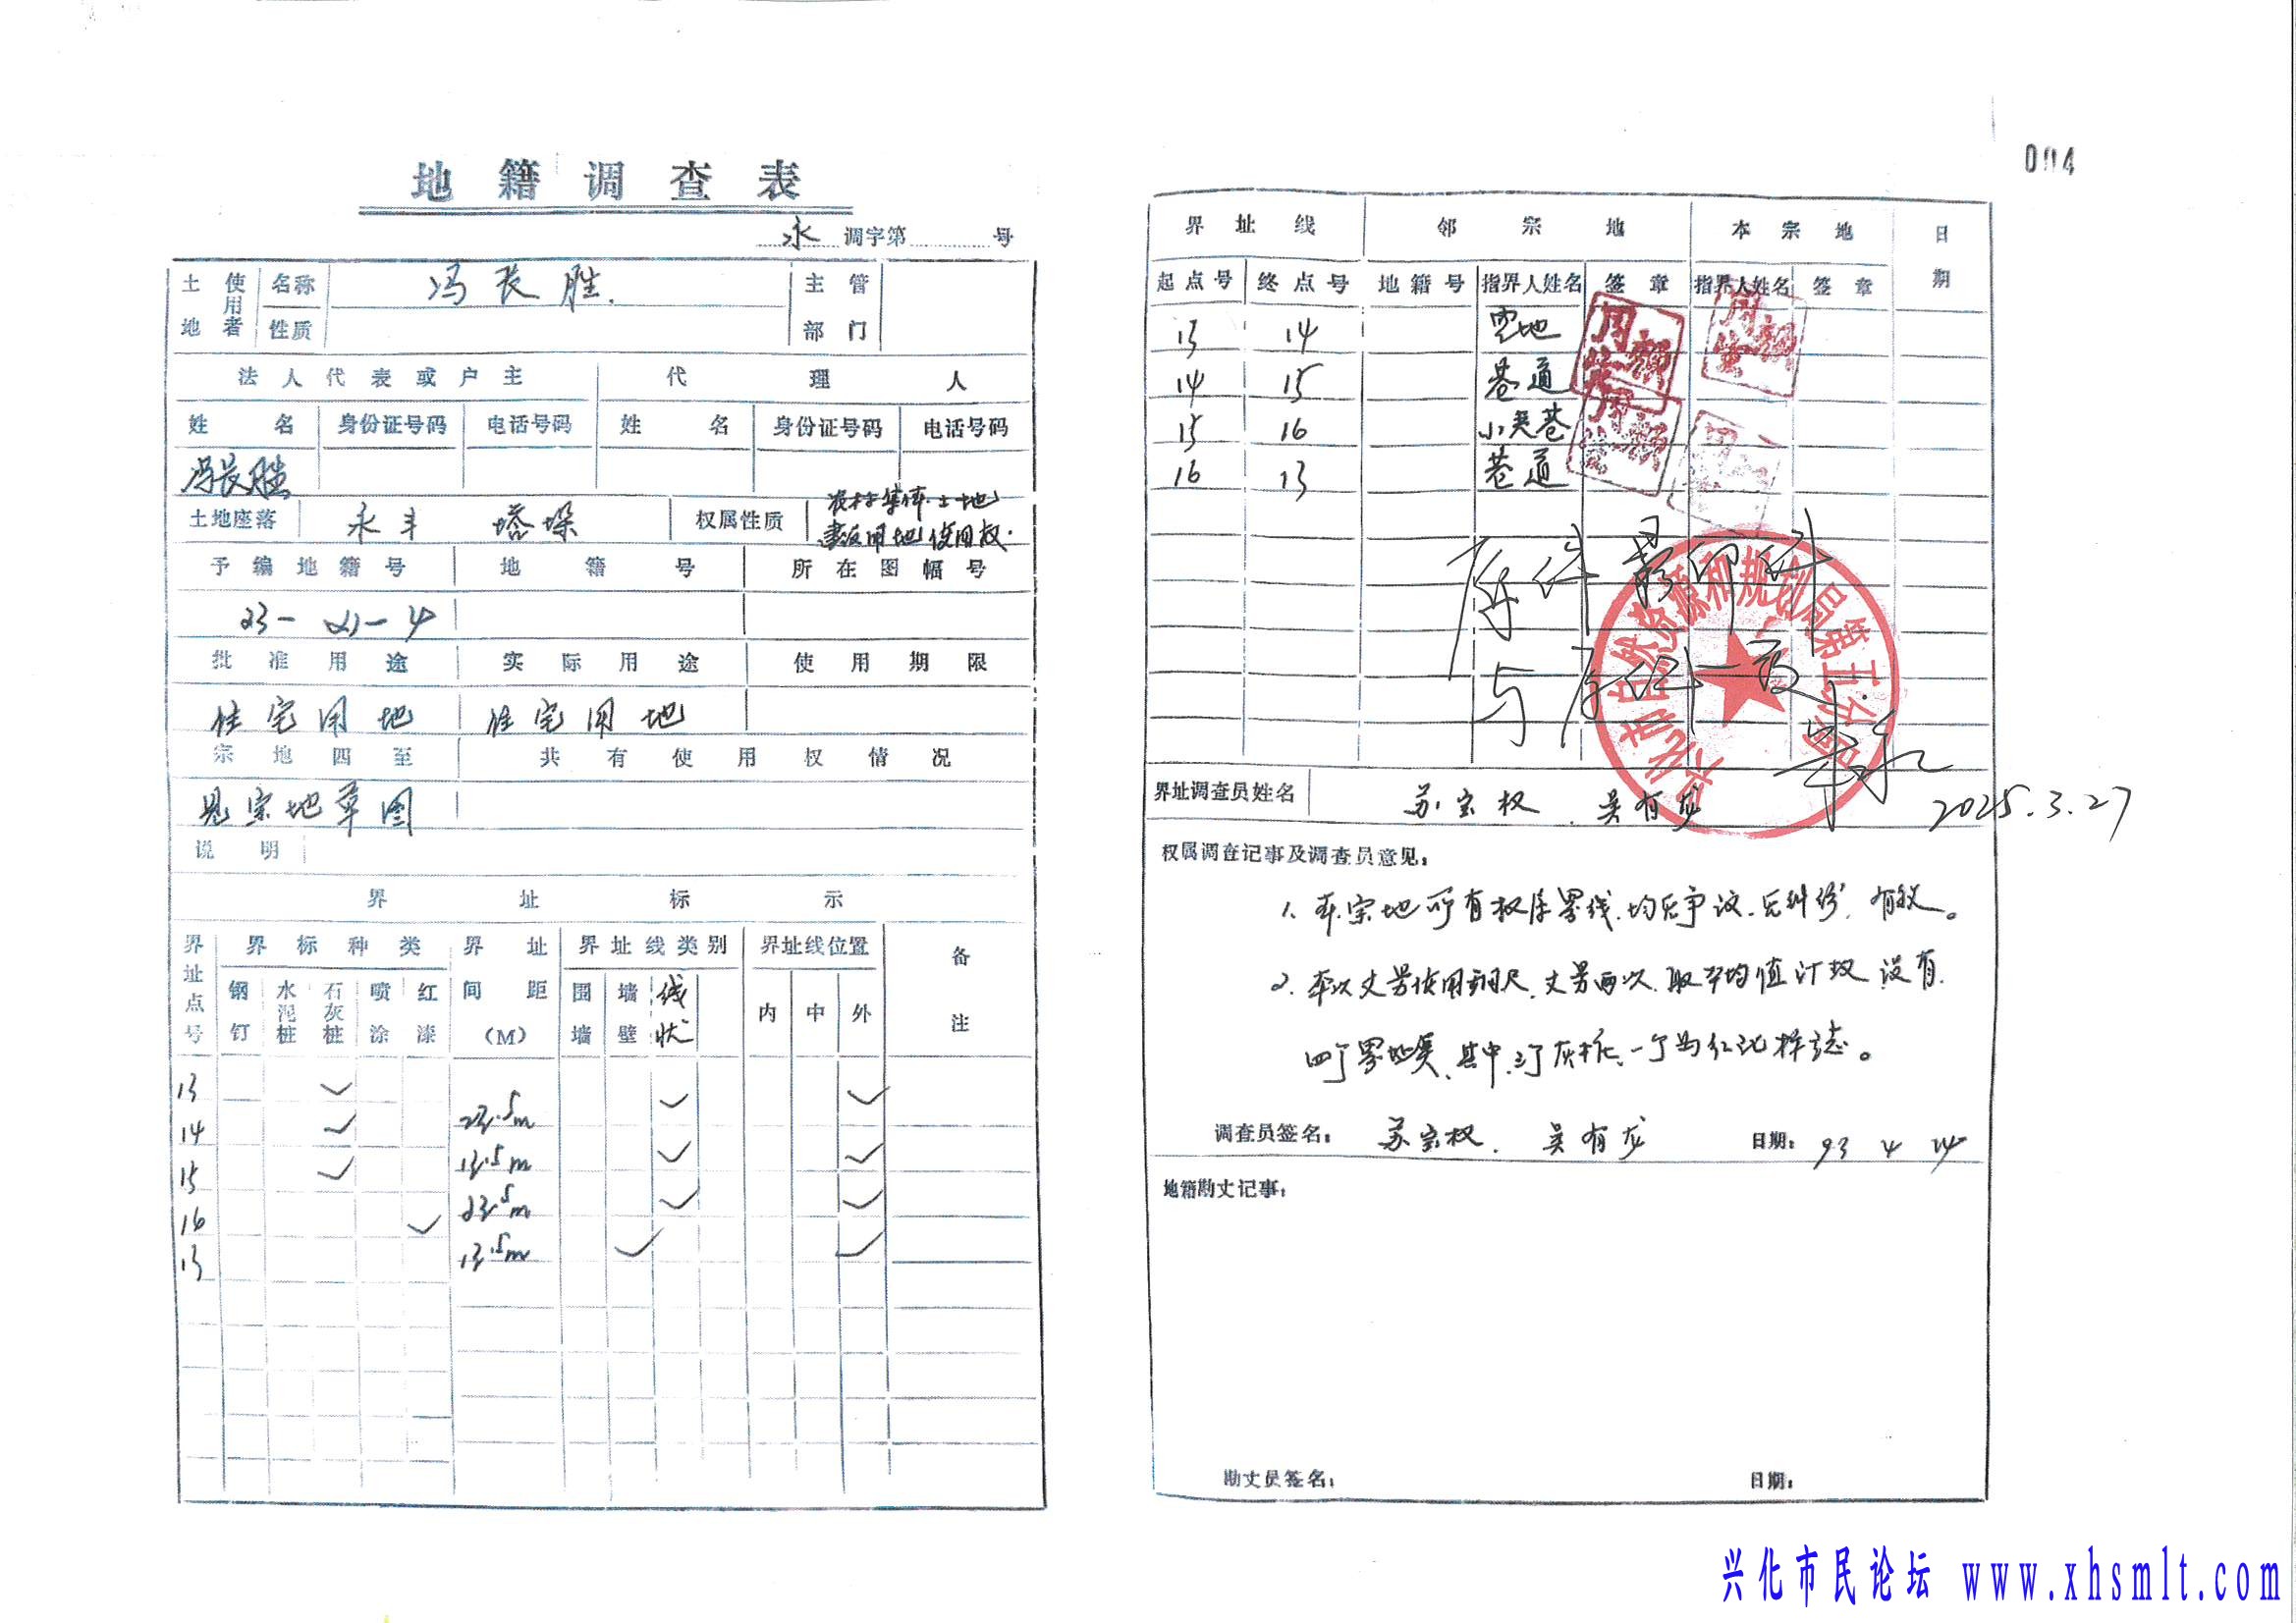 004
地籍调查表
永 调字第 号
土地使用者 名称 冯长胜. 主管部门
性质
法人代表或户主 代理人
姓名 身份证号码 电话号码 姓名 身份证号码 电话号码
冯长胜
土地座落 永丰 塔垛 权属性质 农村集体土地建设用地使用权.
予编地籍号 地籍号 所在图幅号
23-21-4
批准用途 实际用途 使用期限
住宅用地 住宅用地
宗地四至 共有使用权情况
见宗地草图
说明
界址标示
界址点号 界标种类 界址间距(M) 界址线类别 界址线位置 备注
钢钉 水泥桩 石灰桩 喷涂 红漆 围墙 墙壁 线状 内 中 外
13 ✓ ✓ ✓
23.5m
14 ✓ ✓ ✓
13.5m
15 ✓ ✓ ✓
23.5m
16 ✓ ✓ ✓
13.5m
13
界址线 邻宗地 本宗地 日期
起点号 终点号 地籍号 指界人姓名 签章 指界人姓名 签章
13 14 空地
14 15 巷道
15 16 小夹巷
16 13 巷道
原件影印件
与原件一致
兴化市自然资源和规划局第五分局
2025.3.27
界址调查员姓名 苏宝权 . 吴有龙
权属调查记事及调查员意见:
1. 本宗地所有权属界线.均无争议.无纠纷, 有效。
2. 本次丈量使用钢尺.丈量两次.取平均值计数.设有.
四个界址点,其中.三个灰桩,一个为红漆标志。
调查员签名: 苏宝权. 吴有龙 日期: 93 4 24
地籍勘丈记事:
勘丈员签名: 日期:
兴化市民论坛 www.xhsmlt.com